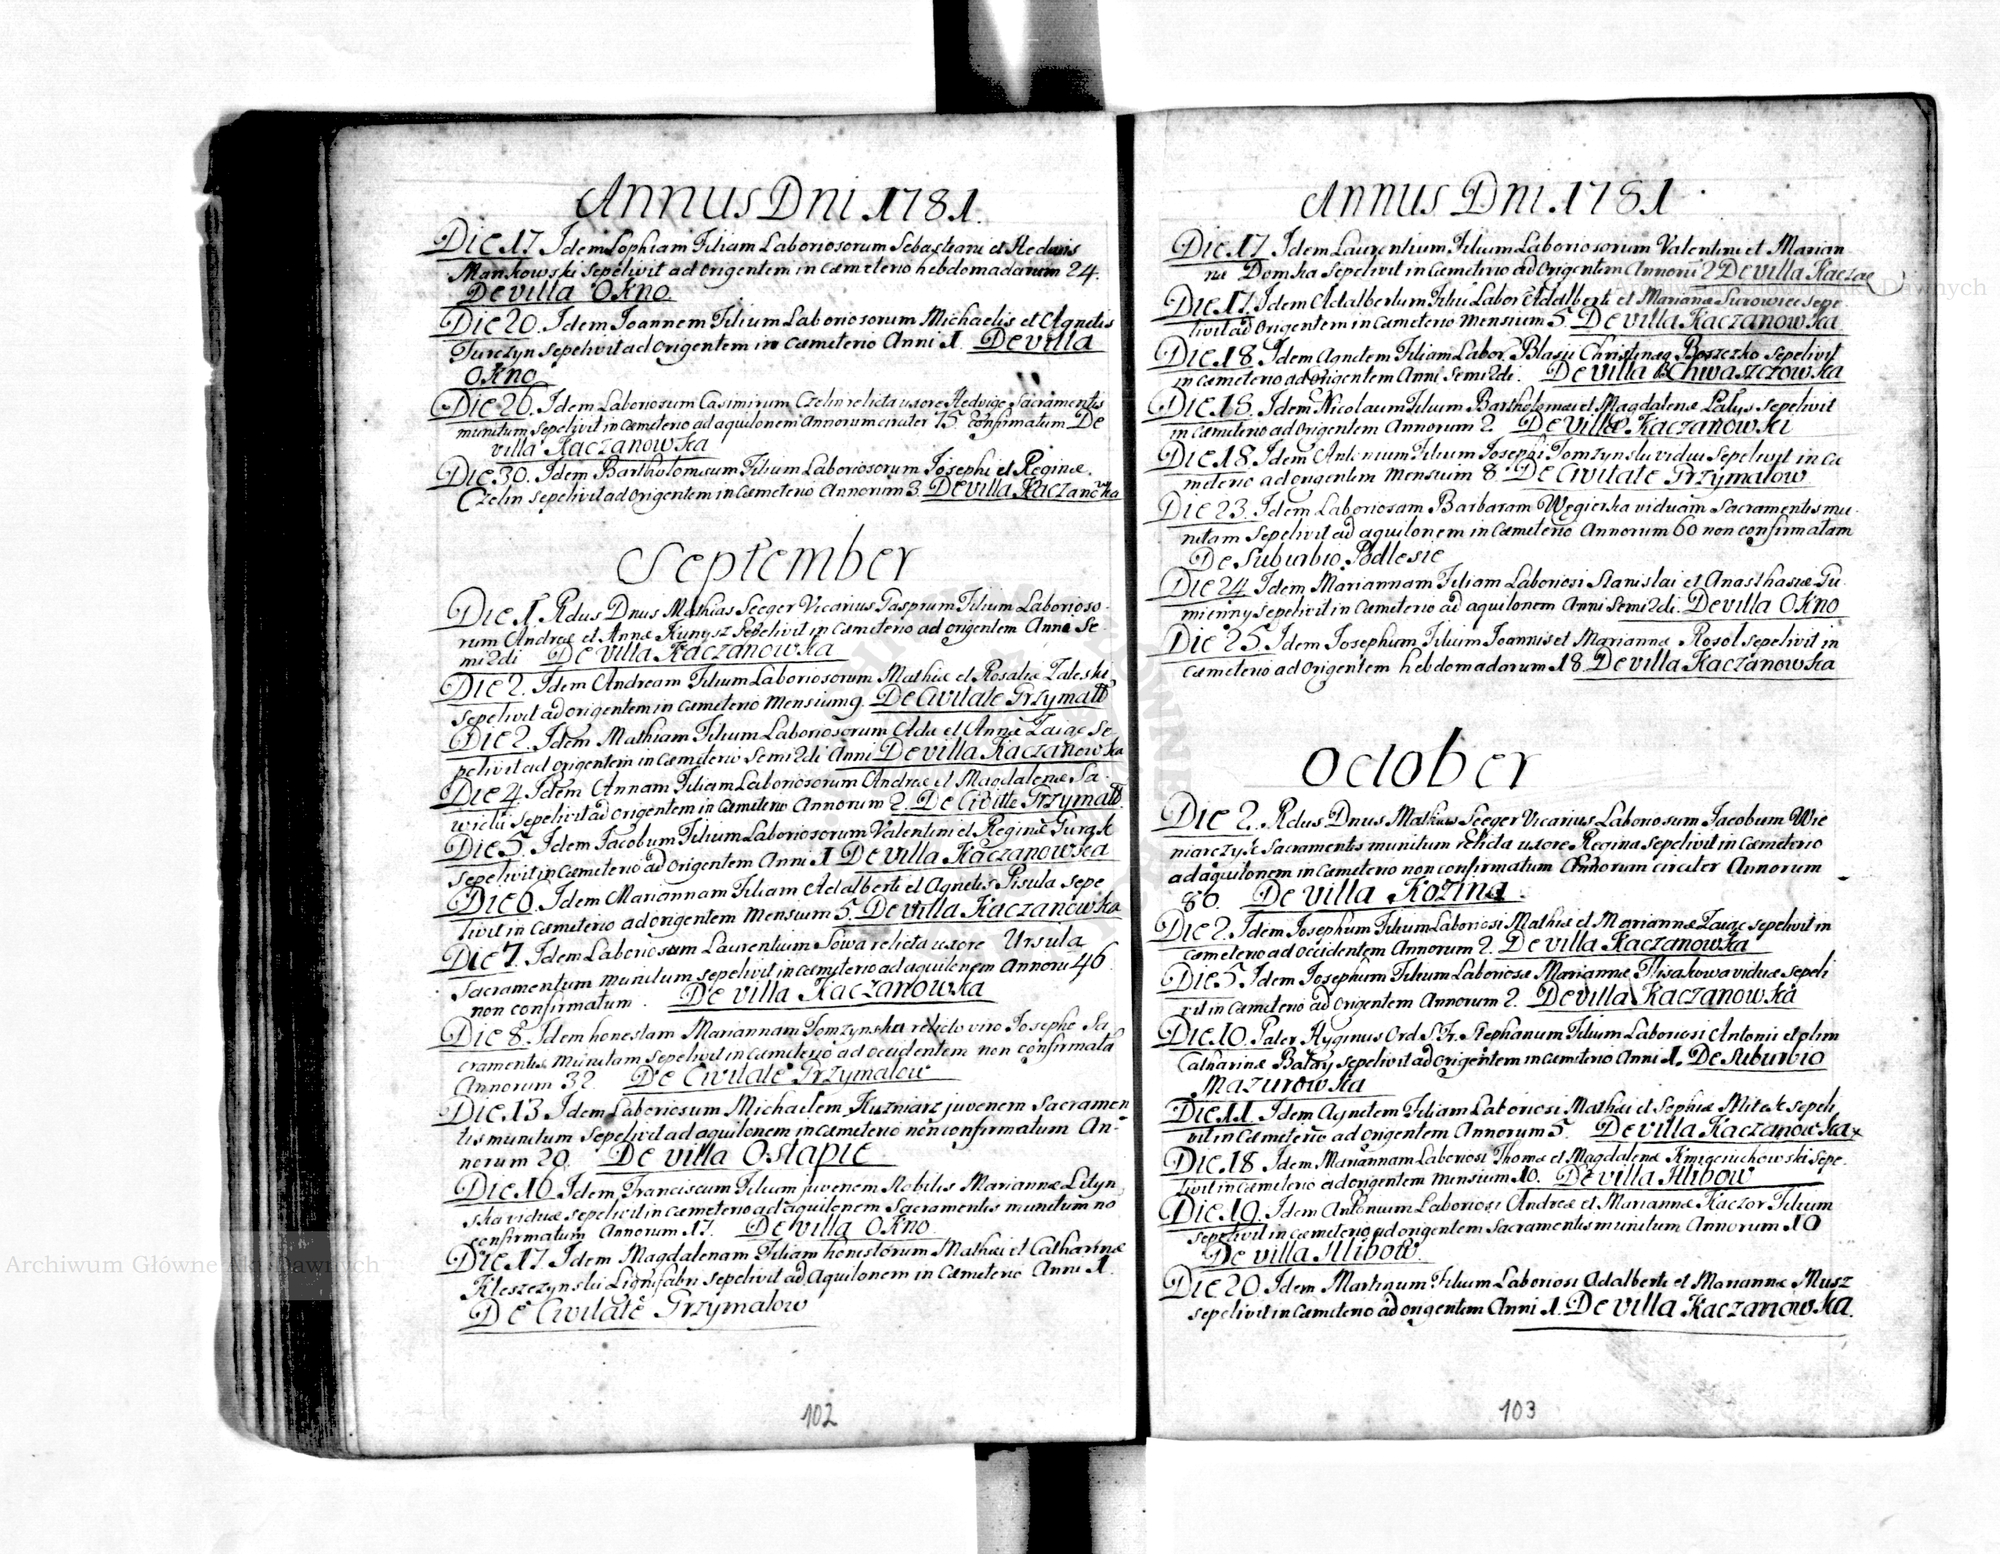 Annus Dni 1781.
Die 17. Idem Sophiam Filiam Laboriosorum Sebastiani et Hedvis
Mankowski sepelivit ad origentem in cæmeterio hebdomadarum 24.
De villa Okno
Die 20. Idem Joannem Filium Laboriosorum Michaelis et Agnetis
Turczyn sepelivit ad origentem in cæmeterio Anni 1. De villa
Okno
Die 26. Idem Laboriosum Casimirum Czelin relicta uxore Hedvige Sacramentis
munitum sepelivit in cæmeterio ad aquilonem Annorum circiter 75 confirmatum De
villa Kaczanowka
Die 30. Idem Bartholomæum Filium Laboriosorum Josephi et Reginæ
Czelin sepelivit ad origentem in cæmeterio Annorum 3. De villa Kaczanowka
September
Die 1. Rdus Dnus Mathias Seeger Vicarius Gasprum Filium Laborioso-
rum Andreæ et Annæ Kunysz sepelivit in cæmeterio ad origentem Anni Se-
mi2di De villa Kaczanowka
Die 2. Idem Andream Filium Laboriosorum Mathiæ et Rosaliæ Zaleski
sepelivit ad origentem in cæmeterio Mensium 9. De Civitate Grzymałł
Die 2. Idem Mathiam Filium Laboriosorum Adæ et Annæ Zaiąc Se-
pelivit ad origentem in cæmeterio Semi2di Anni De villa Kaczanowka
Die 4. Idem Annam Filiam Laboriosorum Andreæ et Magdalenæ Sa-
wicki sepelivit ad origentem in cæmeterio Annorum 2. De Civitte Grzymałł.
Die 5. Idem Jacobum Filium Laboriosorum Valentini et Reginæ Gurak
sepelivit in cæmeterio ad origentem Anni 1 De villa Kaczanowka
Die 6. Idem Mariannam Filiam Adalberti et Agnetis Pisula sepe-
livit in cæmeterio ad origentem Mensium 5. De villa Kaczanowka
Die 7. Idem Laboriosum Laurentium Sowa relicta uxore Ursula
Sacramentum munitum sepelivit in cæmeterio ad aquilonem Annoru 46
non confirmatum. De villa Kaczanowka
Die 8. Idem honestam Mariannam Tomzynska relicto viro Josepho Sa-
cramentis munitam sepelivit in cæmeterio ad occidentem non confirmatā
Annorum 32. De Civitate Grzymalow
Die 13 Idem Laboriosum Michaelem Kuzniarz juvenem Sacramen-
tis munitum sepelivit ad aquilonem in cæmeterio non confirmatum An-
norum 29. De villa Ostapie
Die 16 Idem Franciscum Filium juvenem Nobilis Mariannæ Lityn-
ska viduæ sepelivit in cæmeterio ad aquilonem Sacramentis munitum no
confirmatum Annorum 17. De villa Okno
Die 17. Idem Magdalenam Filiam honestorum Mathiæ et Catharinæ
Kleszczynski Lignifabri sepelivit ad Aquilonem in Cæmeterio Anni 1.
De Civitate Grzymalow
102
Annus Dni. 1781.
Die 17 Idem Laurentium Filium Laboriosorum Valentini et Marian-
næ Domka sepelivit in cæmeterio ad origentem Annoru 2 De villa Kaczae
Die 17. Idem Adalbertum Filiu Labor Adalberti et Marianæ Surowiec sepe-
livit ad origentem in cæmeterio Mensium 5. De villa Kaczanowka
Die 18. Idem Agnetem Filiam Labor. Blasii Christinæ Boszezko sepelivit
in cæmeterio ad origentem Anni semi2di. De villa Chwaszczowka
Die 18. Idem Nicolaum Filium Bartholomæi et Magdalenæ Latys sepelivit
in cæmeterio ad origentem Annorum 2. De Villa Kaczanowki
Die 18. Idem Antonium Filium Josephi Tomzynski vidui sepelivit in cæ-
meterio ad origentem Mensium 8. De Civitate Grzymalow
Die 23. Idem Laboriosam Barbaram Węgierska viduam Sacramentis mu-
nitam sepelivit ad aquilonem in cæmeterio Annorum 60 non confirmatam
De Suburbio Podlesie
Die 24. Idem Mariannam Filiam Laboriosi Stanislai et Anasthasiæ Gu-
mienny sepelivit in cæmeterio ad aquilonem Anni Semi2di. De villa Okno
Die 25. Idem Josephum Filium Joannis et Mariannæ Rosol sepelivit in
cæmeterio ad origentem hebdomadarum 18. De villa Kaczanowka
October
Die 2. Rdus Dnus Mathias Seeger Vicarius Laboriosum Jacobum Wie-
niarczyk Sacramentis munitum relicta uxore Regina sepelivit in cæmeterio
ad aquilonem in cæmeterio non confirmatum Annorum circiter Annorum
80. De villa Kozina.
Die 2. Idem Josephum Filium Laboriosi Mathiæ et Mariannæ Zaiąc sepelivit in
cæmeterio ad occidentem Annorum 2. De villa Kaczanowka
Die 5 Idem Josephum Filium Laboriosæ Mariannæ Hisakowa viduæ sepeli-
vit in cæmeterio ad origentem Annorum 2. De villa Kaczanowka
Die 10. Pater Hyginus Ord. S. Fr. Stephanum Filium Laboriosi Antonii et
Catharinæ Bałay sepelivit ad origentem in cæmeterio Anni 1. De Suburbio
Mazurowka
Die 11. Idem Agnetem Filiam Laboriosi Mathæi et Sophiæ Mitek sepeli-
vit in cæmeterio ad origentem Annorum 5. De villa Kaczanowka
Die 18 Idem Mariannam Laboriosi Thomæ et Magdalenæ sepe-
livit in cæmeterio ad origentem Mensium 10. De villa Hlibow
Die 19. Idem Antonium Laboriosi Andreæ et Mariannæ Kaczor Filium
sepelivit in cæmeterio ad origentem Sacramentis munitum Annorum 10
De villa Hlibow.
Die 20. Idem Martinum Filium Laboriosi Adalberti et Mariannæ Musz
sepelivit in cæmeterio ad origentem Anni 1. De villa Kaczanowka.
103
Archiwum Główne Akt Dawnych
Archiwum Główne Akt Dawnych